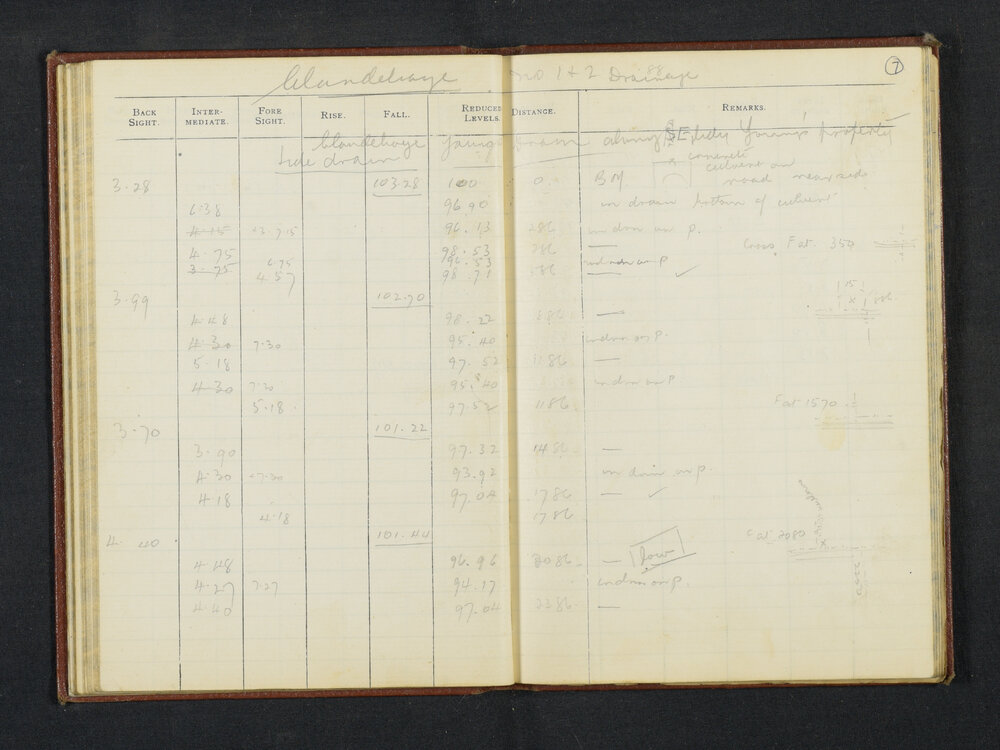 Clandeboye No 1 & 2 Drainage 7
BACK SIGHT. INTER-MEDIATE. FORE SIGHT. RISE. FALL. REDUCED LEVELS. DISTANCE. REMARKS.
Clandeboye Youngs Drain along SE side Young's Property
side drain
concrete
culvert on
3.28 103.28 100 0. B.M. road
6.38 96.90 in drain bottom of culvert
4.15 7.15 96.13 286 in drain on p.
4.75 98.53 286 — Cross Fat 350
3.75 6.75 96.53 in drain on p
4.57 98.71 586 — ✓
3.99 102.70
4.48 98.22 886 —
4.30 7.30 95.40 in drain on p.
5.18 97.52 1186 —
4.30 7.30 95.40 in drain on p
5.18 97.52 1186 Fat 1570
3.70 101.22
3.90 97.32 1486 —
4.30 7.30 93.92 in drain on p.
4.18 97.04 1786 — ✓
4.18 1786
4.40 101.44 Fat 2080
4.48 96.96 2086 — low
4.27 7.27 94.17 in drain on p.
4.40 97.04 2386 —